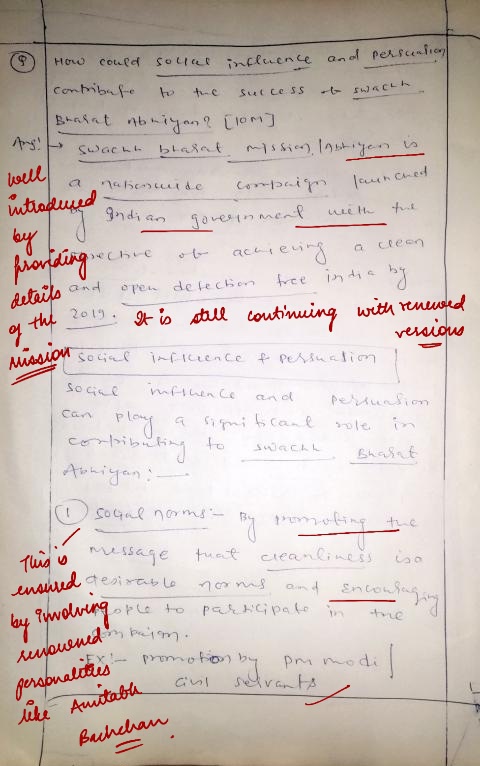 Q How could social influence and persuation
contribute to the success of swachh
Bharat Abhiyan? [10M]
Ans: → swachh bharat mission/Abhiyan is
a nationwide campaign launched
by Indian government with the
objective of achieving a clean
and open defection free india by
2019. It is still continuing with renewed
versions
well
introduced
by
providing
details
of the
mission
social influence & persuation
social influence and persuation
can play a significant role in
contributing to swachh Bharat
Abhiyan:—
1 social norms:- By promoting the
message that cleanliness is a
desirable norms and encouraging
people to participate in the
campaign.
Ex:- promotion by pm modi /
civil servants
This is
ensured
by involving
renowned
personalities
like Amitabh
Bachchan.